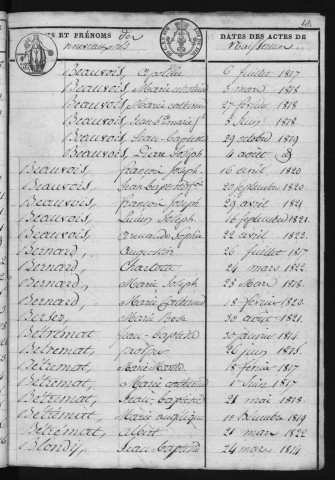 NOMS ET PRÉNOMS des nouveaux nés
DATES DES ACTES de Naissances
Beauvois, 6 juillet 1817
Beauvois, Marie 3 mars 1818
Beauvois, Marie Catherine 27 février 1818
Beauvois, Jean Bte Marie Jh 8 juin 1818
Beauvois, Jean Baptiste 29 octobre 1819
Beauvois, Pierre Joseph 4 août id
Beauvois, françois Joseph 16 avril 1820
Beauvois, Jean Baptiste 20 septembre 1820
Beauvois, françois Joseph 29 avril 1821
Beauvois, Lucien Joseph 16 septembre 1821
Beauvois, armande Sophie 22 avril 1822
Bernard, augustin 26 juillet 1817
Bernard, Charlotte 24 mars 1822
Bernard, Marie Joseph 23 Mars 1818
Bernard, Marie Catherine 18 février 1820
Berser, Marie Rose 30 août 1821
Betremat, Jean Baptiste 30 1814
Betremat, prosper 26 juin 1815
Betremat, Marie 18 février 1817
Betremat, Marie Catherine 1 juin 1817
Betremat, Jean Baptiste 21 mai 1818
Betremat, Marie angélique 10 Décembre 1819
Betremat, albert 21 mars 1822
Blondy, Jean Baptiste 24 mars 1814